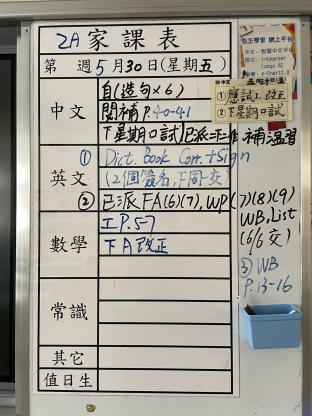 2A 家課表
第 週 5 月 30 日(星期五)
中文
自(造句×6)
閱補 P.40-41
下星期口試
補溫習
① 應試工改正
② 下星期口試
英文
① Dict. Book Corr. + Sign
(2個簽名,下周一交)
② 已派 FA(6)(7), WP(7)(8)(9)
WB, List
(6/6 交)
③ WB
P.13-16
數學
工P.5-7
下A改正
常識
其它
值日生
自主學習 網上平台